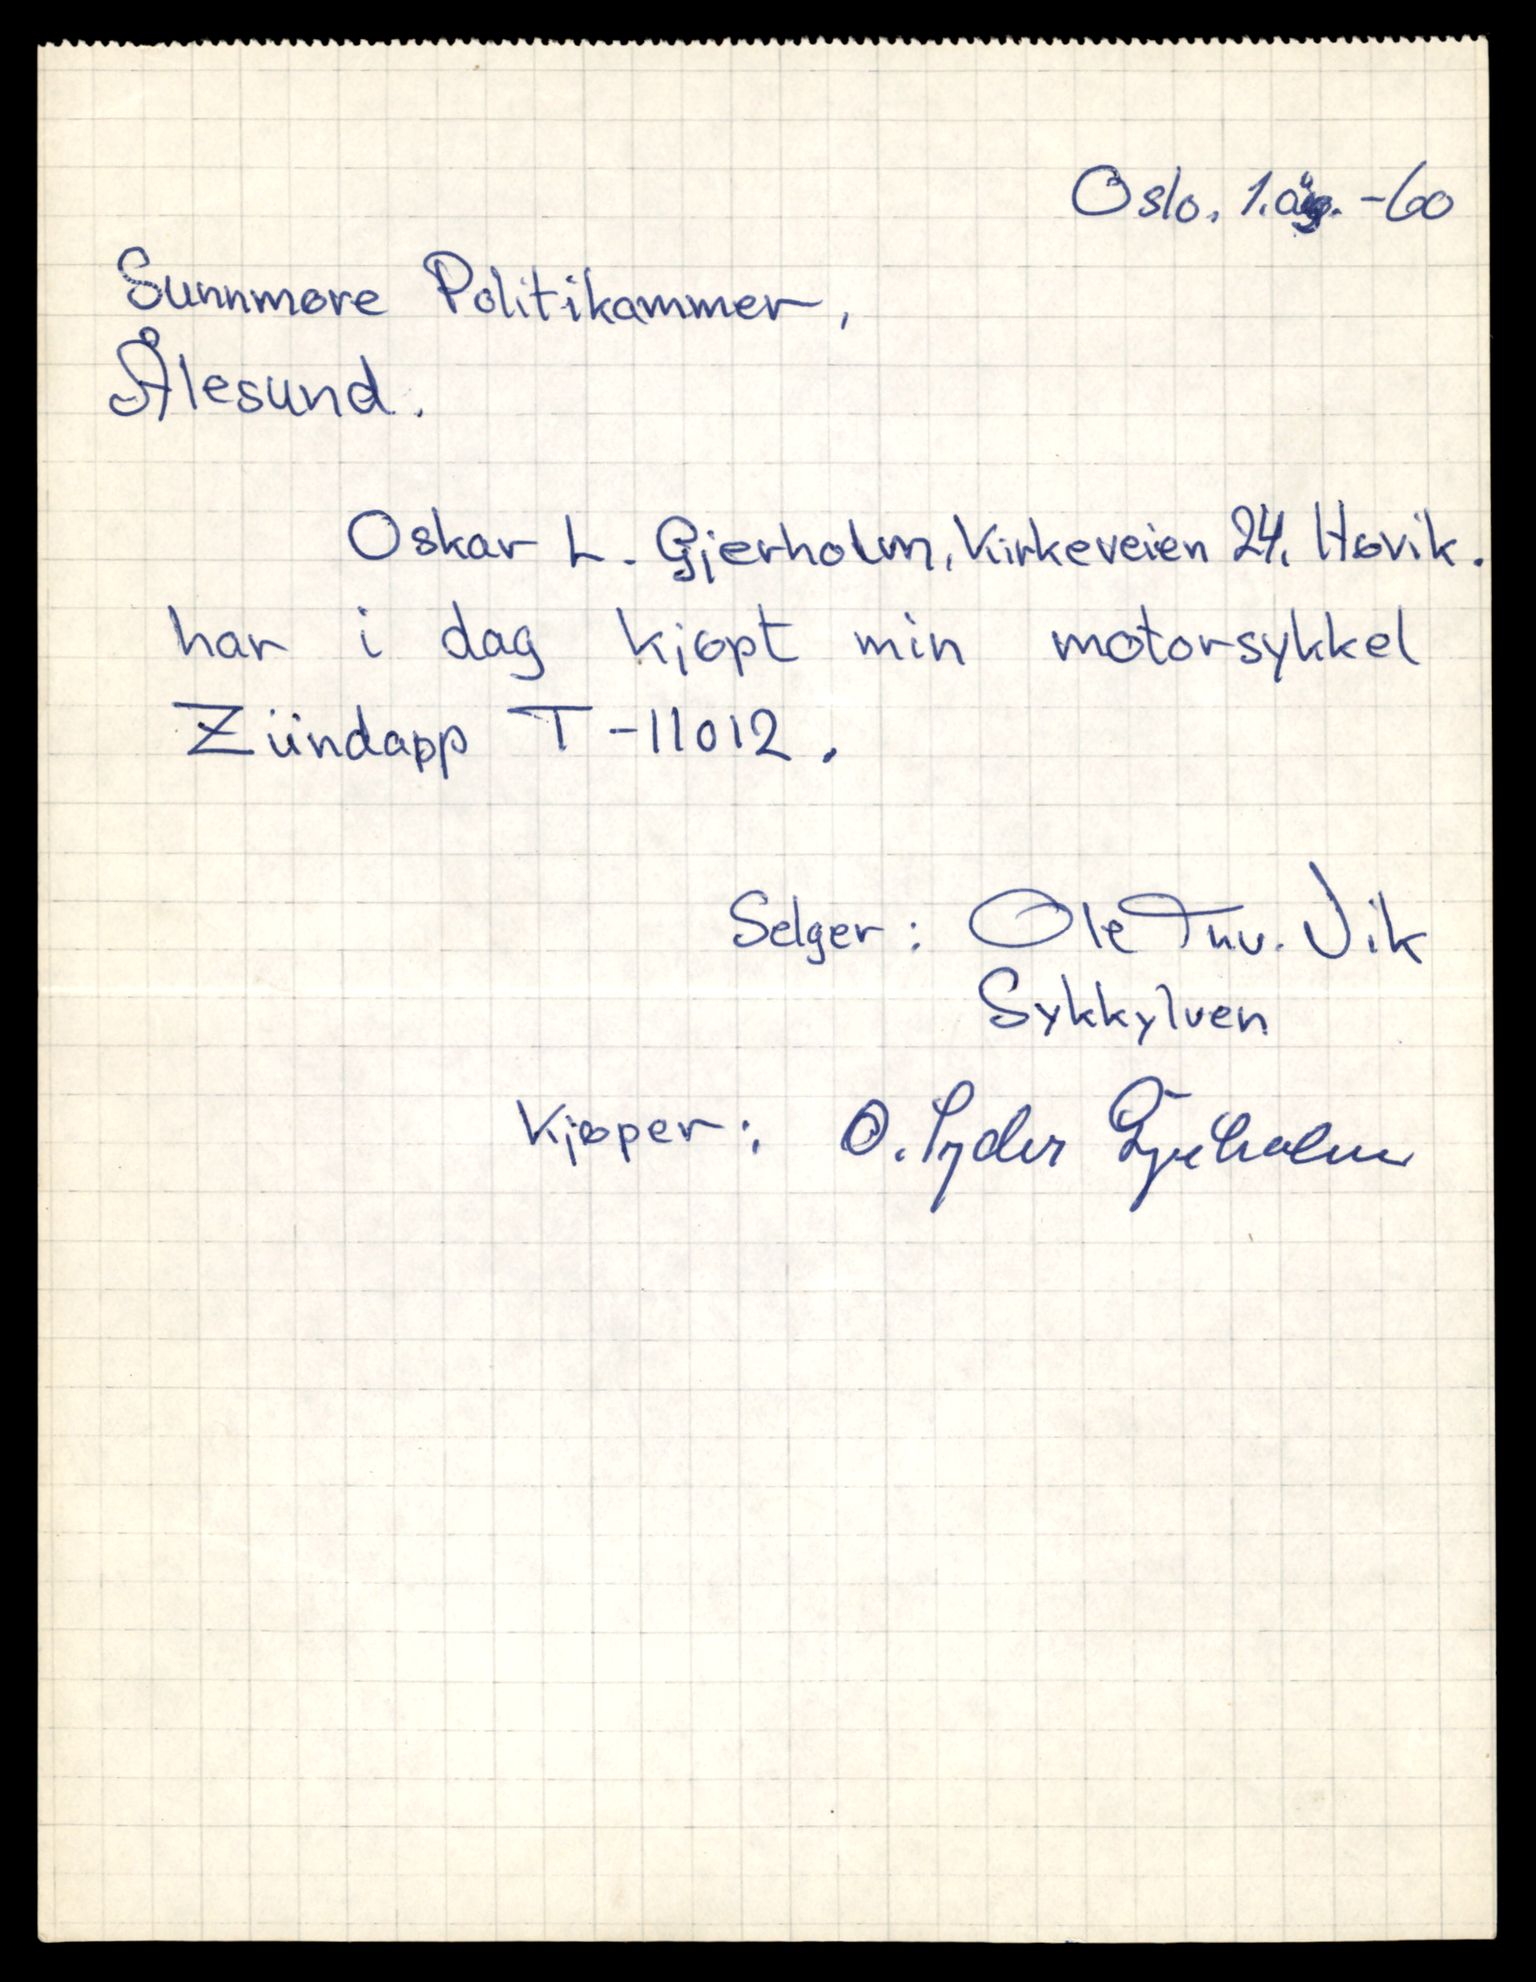 Oslo. 1. aug. -60
Sunnmøre Politikammer,
Ålesund.
Oskar L. Gjerholm, Kirkeveien 24. Høvik.
har i dag kjøpt min motorsykkel
Zündapp T-11012.
Selger: Ole Tnv. Vik
Sykkylven
Kjøper: O. Lyder Gjerholm